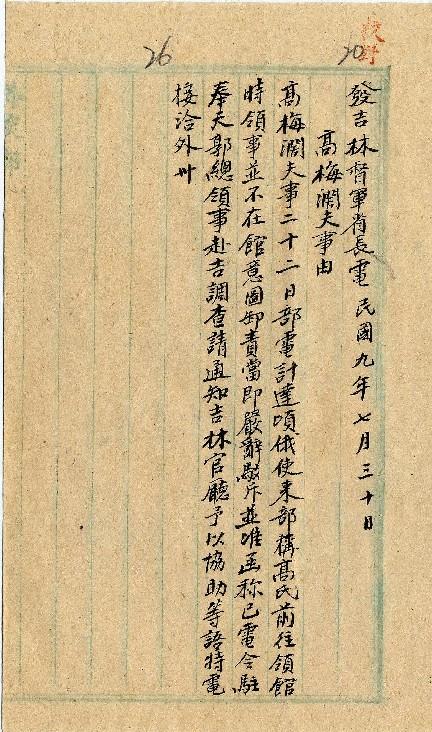 校對
20
26
發吉林督軍省長電 民國九年七月三十日
高梅淍夫事由
高梅淍夫事二十二日部電計達頃俄使来部稱高氏前往領館
時領事並不在館意圖卸責當即嚴辭駁斥並准函称已電令駐
奉天郭總領事赴吉調查請通知吉林官廳予以協助等語特電
接洽外卅